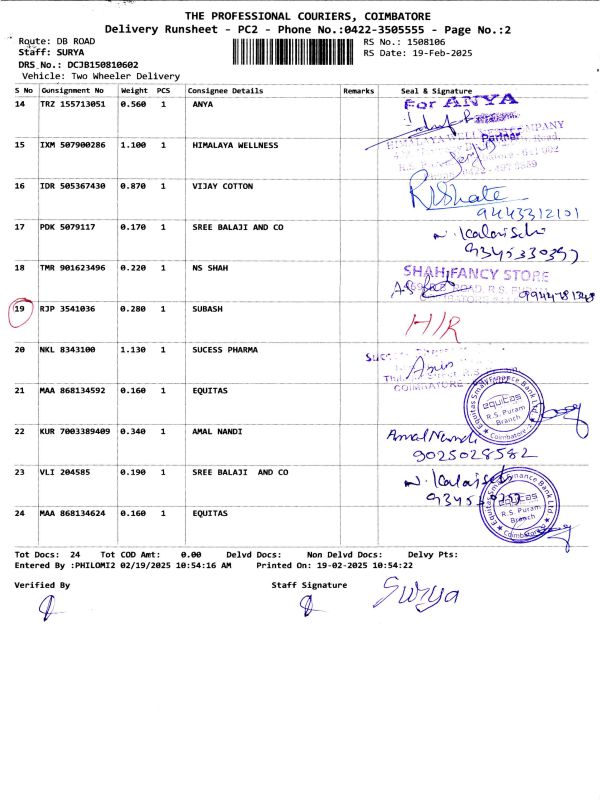 THE PROFESSIONAL COURIERS, COIMBATORE
Delivery Runsheet - PC2 - Phone No.:0422-3505555 - Page No.:2
Route: DB ROAD
RS No.: 1508106
Staff: SURYA
RS Date: 19-Feb-2025
DRS No.: DCJB150810602
Vehicle: Two Wheeler Delivery
S No Cunsignment No Weight PCS Consignee Details Remarks Seal & Signature
14 TRZ 155713051 0.560 1 ANYA
For ANYA
Partner
15 IXM 507900286 1.100 1 HIMALAYA WELLNESS
HIMALAYA WELLNESS COMPANY
16 IDR 505367430 0.870 1 VIJAY COTTON
9443312101
17 PDK 5079117 0.170 1 SREE BALAJI AND CO
N. Kalaiselvi
9345330397
18 TMR 901623496 0.220 1 NS SHAH
SHAH FANCY STORE
9944781348
19 RJP 3541036 0.280 1 SUBASH
H/R
20 NKL 8343100 1.130 1 SUCESS PHARMA
COIMBATORE
21 MAA 868134592 0.160 1 EQUITAS
Equitas Small Finance Bank Ltd
equitas
R.S. Puram
Branch
Coimbatore
22 KUR 7003389409 0.340 1 AMAL NANDI
Amal Nandi
9025028582
23 VLI 204585 0.190 1 SREE BALAJI AND CO
N. Kalaiselvi
24 MAA 868134624 0.160 1 EQUITAS
equitas
R.S. Puram
Branch
Tot Docs: 24 Tot COD Amt: 0.00 Delvd Docs: Non Delvd Docs: Delvy Pts:
Entered By :PHILOMI2 02/19/2025 10:54:16 AM Printed On: 19-02-2025 10:54:22
Verified By Staff Signature
Surya